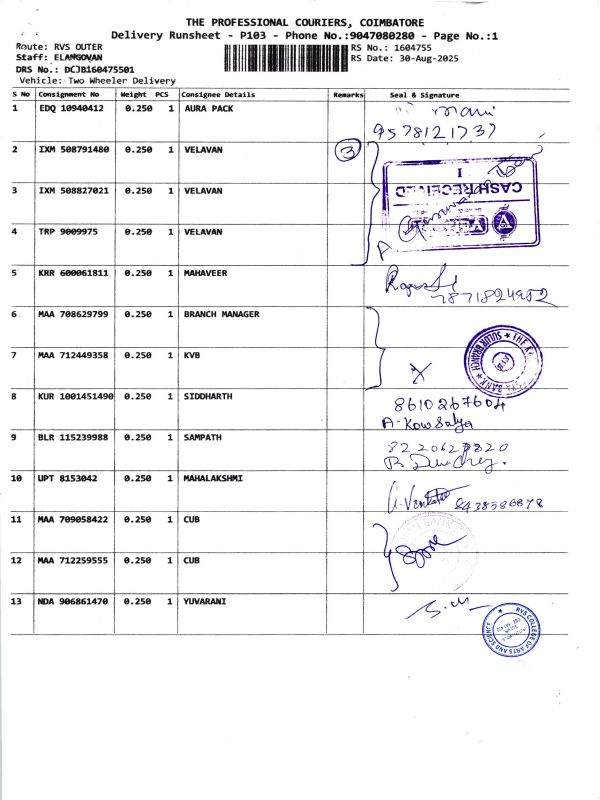 THE PROFESSIONAL COURIERS, COIMBATORE
Delivery Runsheet - P103 - Phone No.:9047080280 - Page No.:1
Route: RVS OUTER
RS No.: 1604755
Staff: ELANGOVAN
RS Date: 30-Aug-2025
DRS No.: DCJB160475501
Vehicle: Two Wheeler Delivery
S No Consignment No Weight PCS Consignee Details Remarks Seal & Signature
1 EDQ 10940412 0.250 1 AURA PACK
9578121737
2 IXM 508791480 0.250 1 VELAVAN 3
CASH RECEIVED
3 IXM 508827021 0.250 1 VELAVAN
4 TRP 9009975 0.250 1 VELAVAN
5 KRR 600061811 0.250 1 MAHAVEER
7871824952
6 MAA 708629799 0.250 1 BRANCH MANAGER
7 MAA 712449358 0.250 1 KVB
SULUR BRANCH
8 KUR 1001451490 0.250 1 SIDDHARTH 8610267604
A. Kowsalya
9 BLR 115239988 0.250 1 SAMPATH
10 UPT 8153042 0.250 1 MAHALAKSHMI
11 MAA 709058422 0.250 1 CUB
12 MAA 712259555 0.250 1 CUB
13 NDA 906861470 0.250 1 YUVARANI
RVS COLLEGE OF ARTS AND SCIENCE